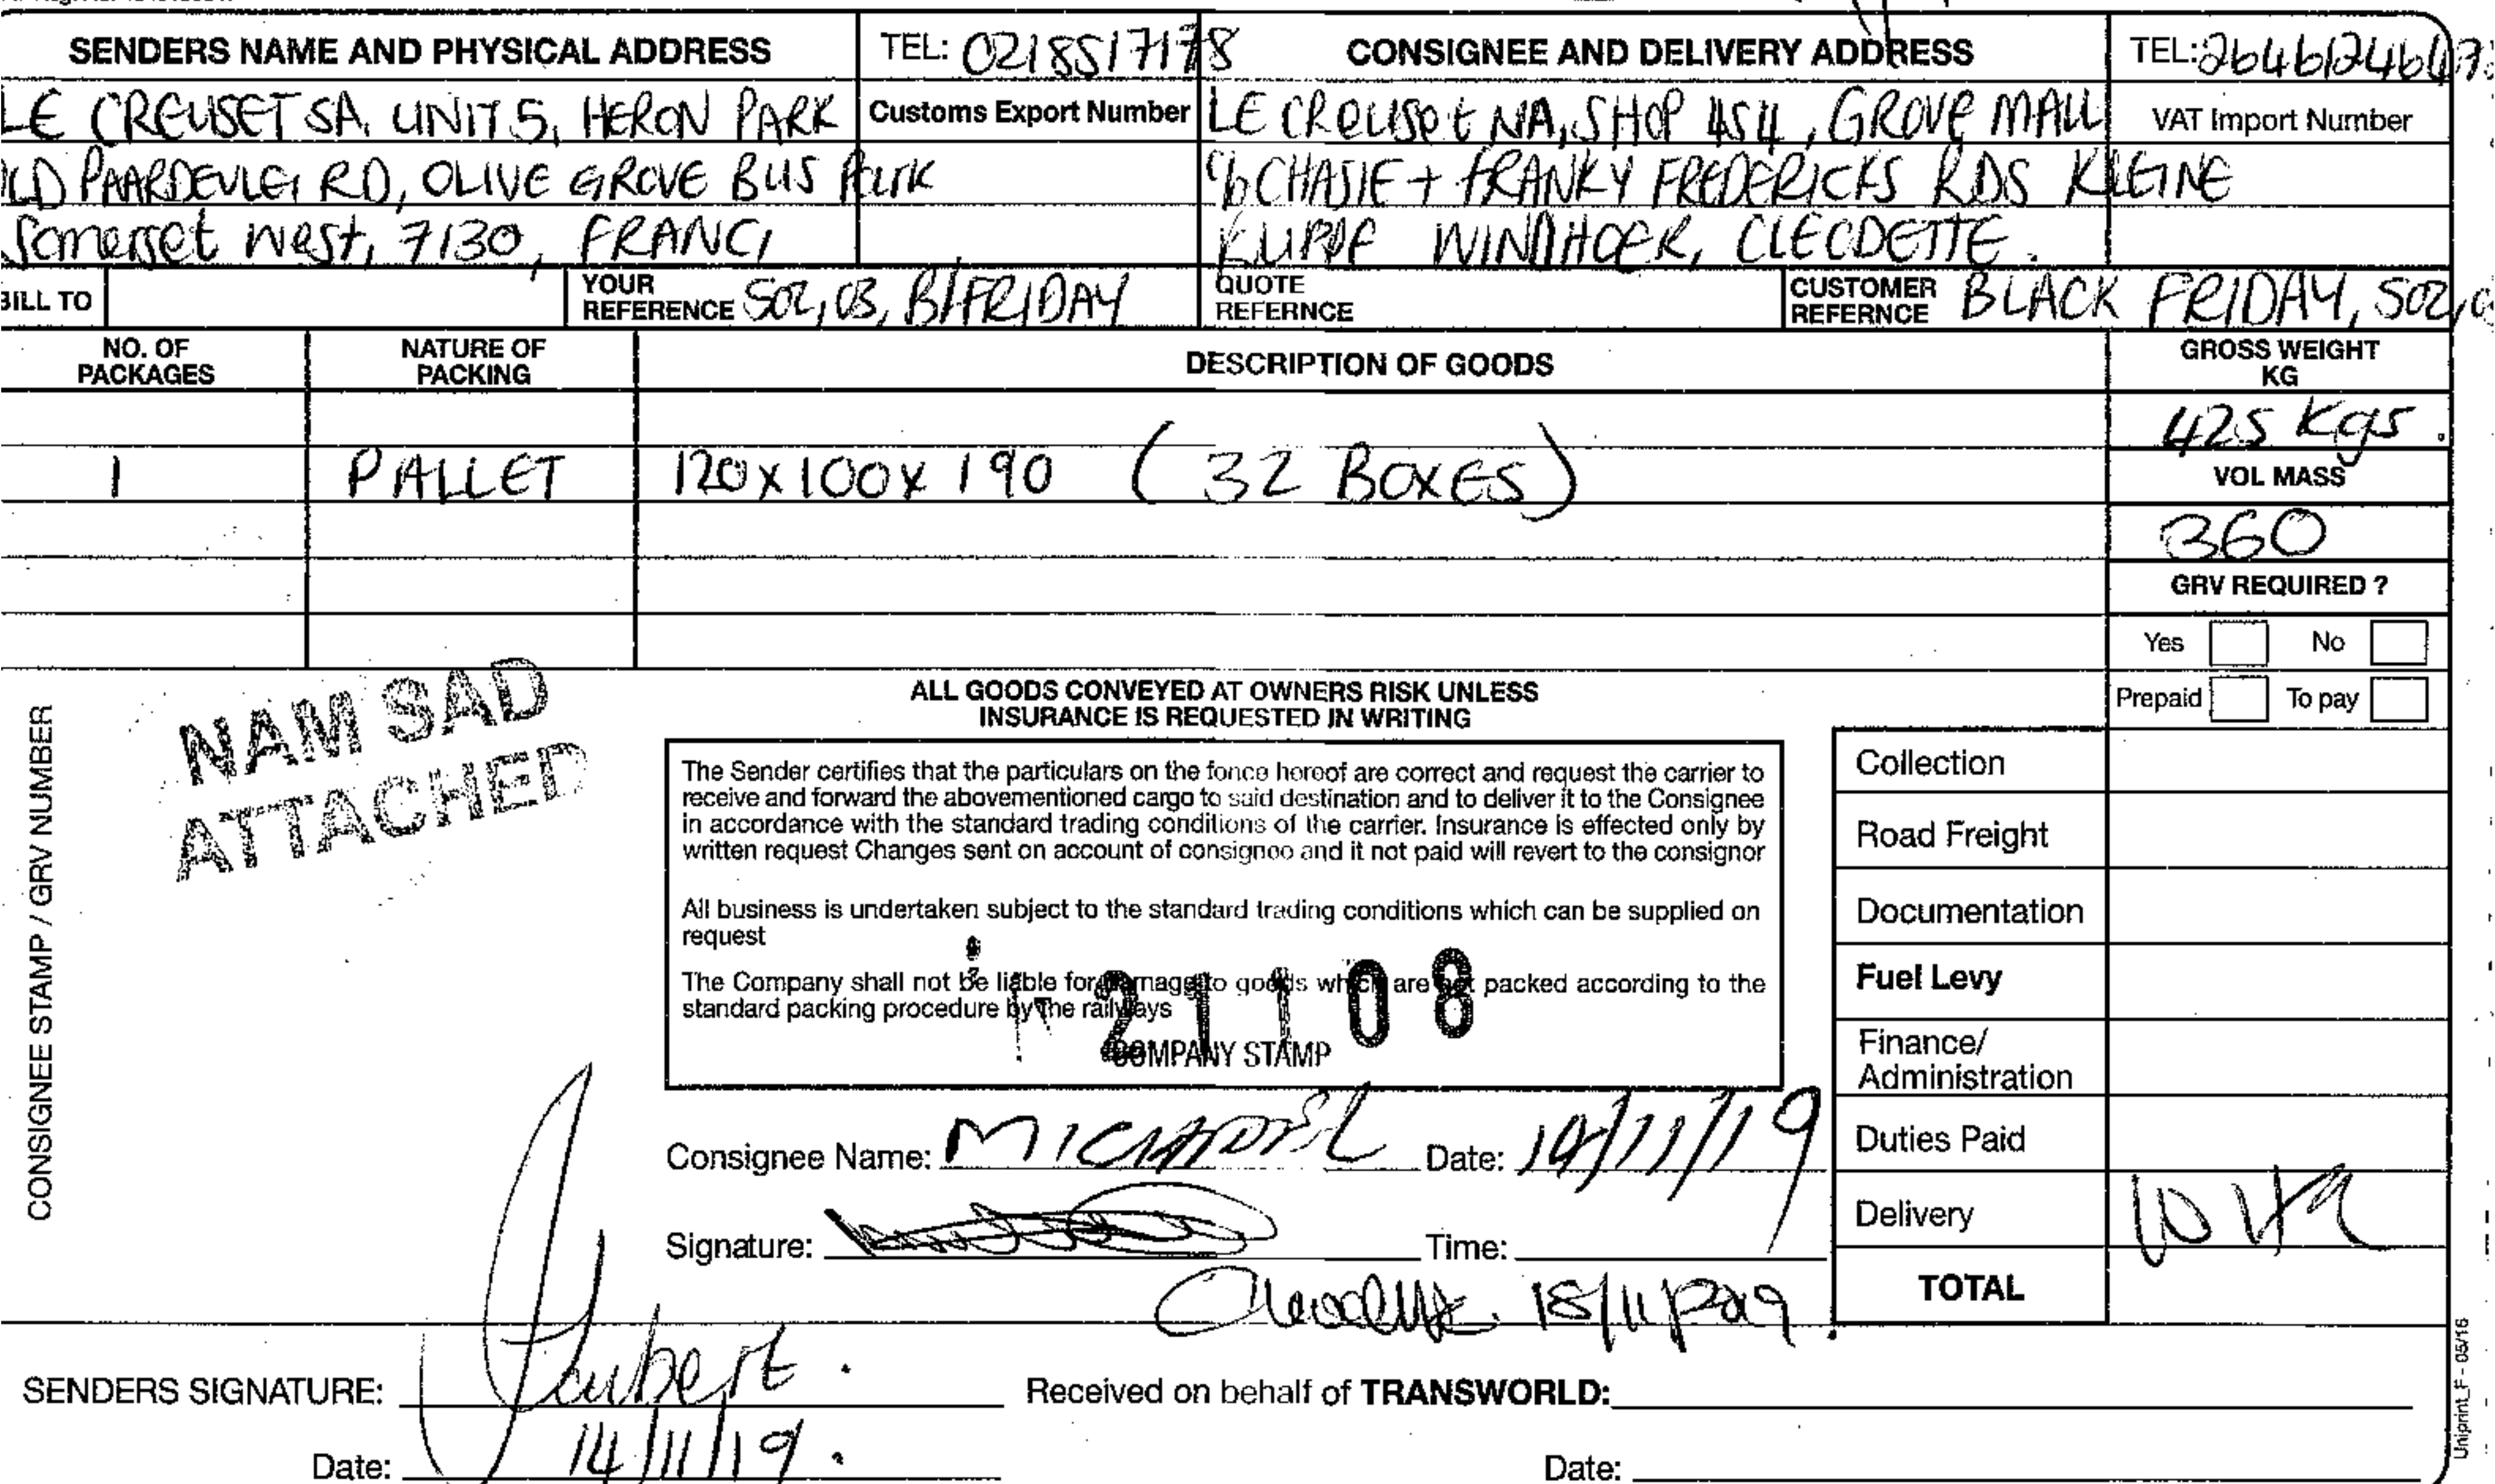 SENDERS NAME AND PHYSICAL ADDRESS TEL: 0218517178 CONSIGNEE AND DELIVERY ADDRESS TEL: 264612464
LE CREUSET SA, UNIT 5, HERON PARK Customs Export Number LE CREUSOT NA, SHOP 454, GROVE MALL VAT Import Number
OLD PAARDEVLEI RD, OLIVE GROVE BUS PARK CHASIE + FRANKY FREDERICKS RDS KLEINE
Somerset West, 7130, FRANCI KUPPE WINDHOEK, CLEODETTE.
BILL TO YOUR REFERENCE S02, 03, B/FRIDAY QUOTE REFERNCE CUSTOMER REFERNCE BLACK FRIDAY, S02,
NO. OF PACKAGES NATURE OF PACKING DESCRIPTION OF GOODS GROSS WEIGHT KG
425 Kgs.
1 PALLET 120x100x190 (32 BOXES) VOL MASS
360
GRV REQUIRED ?
Yes No
Prepaid To pay
CONSIGNEE STAMP / GRV NUMBER
NAM SAD
ATTACHED
ALL GOODS CONVEYED AT OWNERS RISK UNLESS
INSURANCE IS REQUESTED IN WRITING
The Sender certifies that the particulars on the fonce horoof are correct and request the carrier to
receive and forward the abovementioned cargo to said destination and to deliver it to the Consignee
in accordance with the standard trading conditions of the carrier. Insurance is effected only by
written request Changes sent on account of consignoo and it not paid will revert to the consignor
All business is undertaken subject to the standard trading conditions which can be supplied on
request
The Company shall not be liable for damage to goods which are not packed according to the
standard packing procedure by the railways
21108
COMPANY STAMP
Collection
Road Freight
Documentation
Fuel Levy
Finance/
Administration
Duties Paid
Delivery
TOTAL
Consignee Name: Date: 14/11/19
Signature: Time:
Cleodette 18/11/2019
SENDERS SIGNATURE: Joubert. Received on behalf of TRANSWORLD:
Date: 14/11/19. Date:
Uniprint_F - 05/16